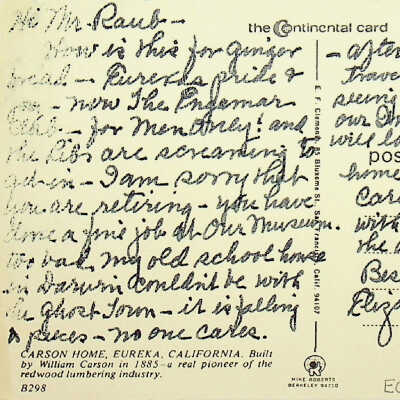 Hi Mr. Raub –
How is this for ginger
bread – Eurekas pride &
joy – now The Ingomar
Club – for Men Only! and
the Libs are screaming to
get in – I am sorry that
you are retiring – you have
done a fine job at Our Museum.
too bad, my old school house
in Darwin couldn't be with
the Ghost Town – it is falling
to pieces – no one cares.
CARSON HOME, EUREKA, CALIFORNIA. Built
by William Carson in 1885—a real pioneer of the
redwood lumbering industry.
B298
the Continental card
E. F. Clements, 85 Bluxome St., San Francisco, Calif. 94107
– after
Trave
seeing
our
will
pos
home
Care
with
the
Bes
Eliza
MIKE ROBERTS
BERKELEY 94710
EC